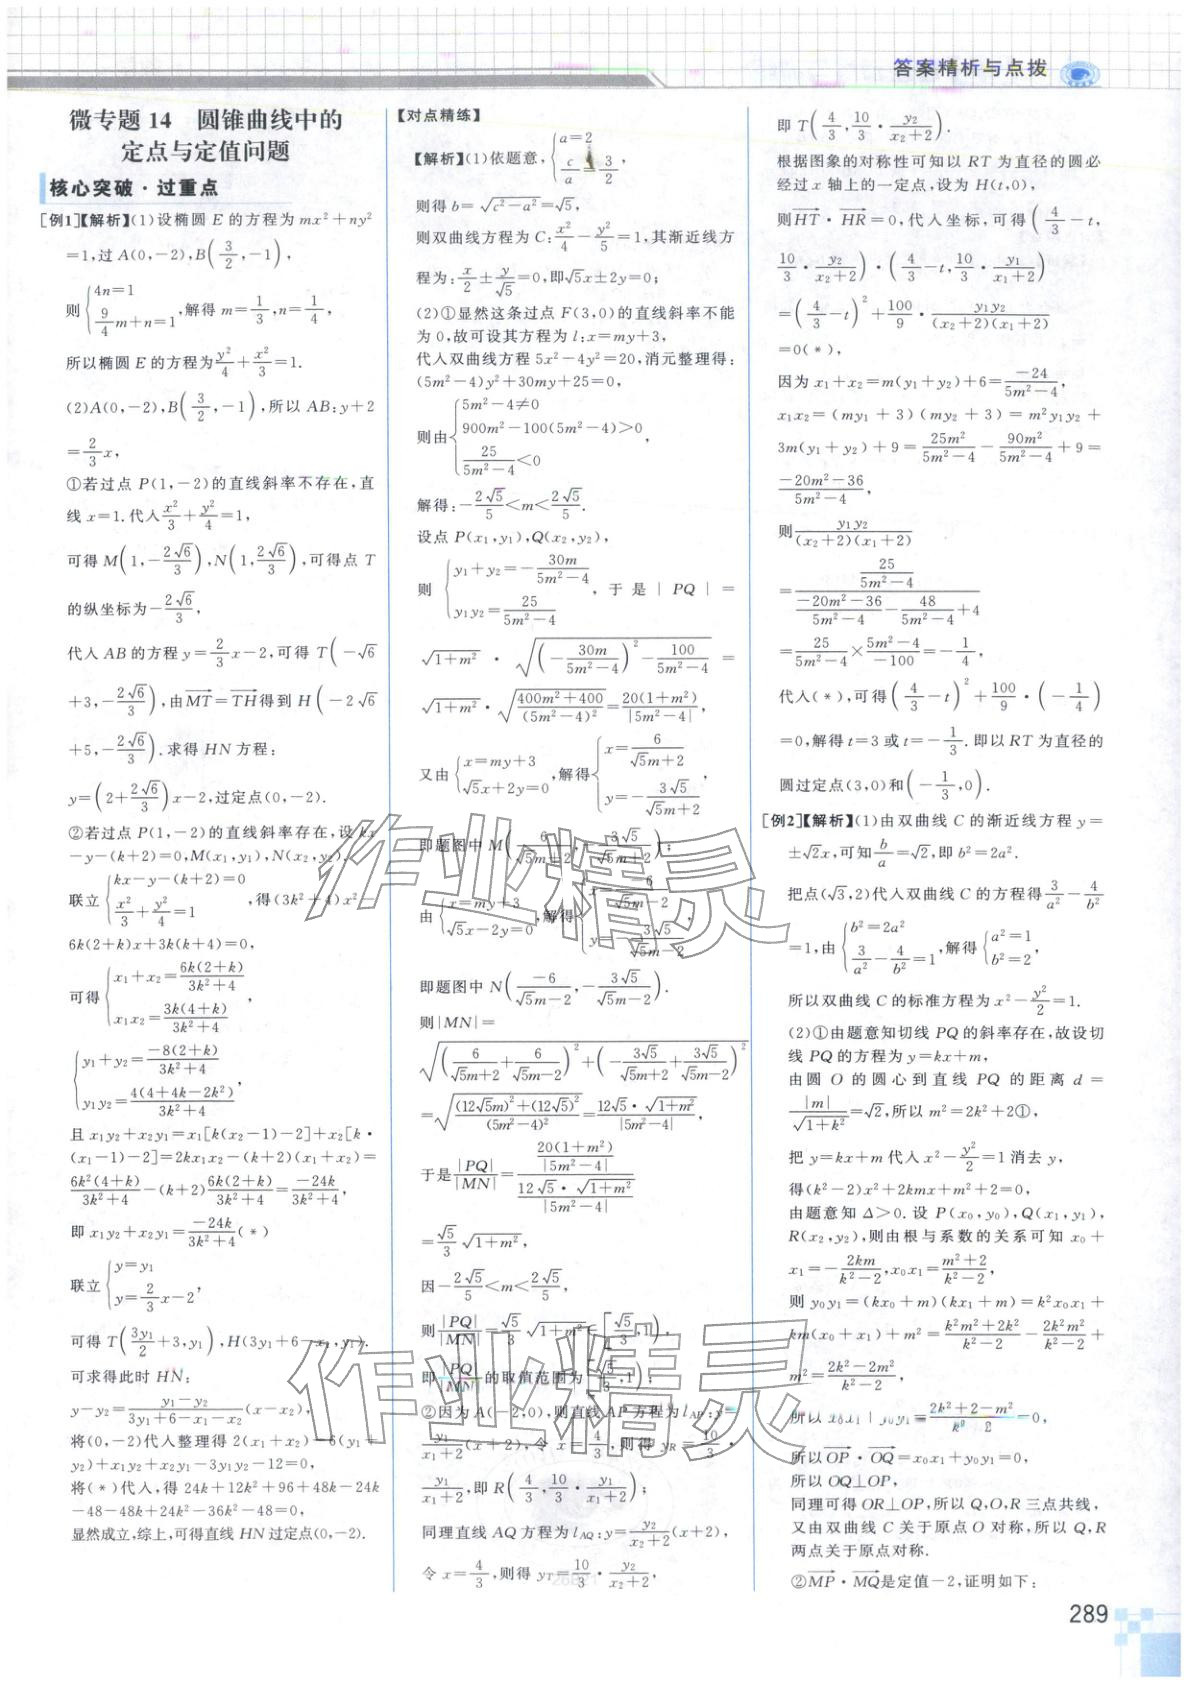 答案精析与点拨
微专题 14 圆锥曲线中的
定点与定值问题
核心突破·过重点
[例1]【解析】(1)设椭圆 E 的方程为 mx²+ny²
=1,过 A(0,-2),B(3/2,-1),
则{4n=1, 9/4 m+n=1,解得 m=1/3,n=1/4,
所以椭圆 E 的方程为y²/4+x²/3=1.
(2)A(0,-2),B(3/2,-1),所以 AB:y+2
=2/3 x,
①若过点 P(1,-2)的直线斜率不存在,直
线 x=1.代入x²/3+y²/4=1,
可得 M(1,-2√6/3),N(1,2√6/3),可得点 T
的纵坐标为-2√6/3,
代入 AB 的方程 y=2/3 x-2,可得 T(-√6
+3,-2√6/3),由MT=TH得到 H(-2√6
+5,-2√6/3).求得 HN 方程:
y=(2+2√6/3)x-2,过定点(0,-2).
②若过点 P(1,-2)的直线斜率存在,设 kx
-y-(k+2)=0,M(x₁,y₁),N(x₂,y₂).
联立{kx-y-(k+2)=0, x²/3+y²/4=1,得(3k²+4)x²-
6k(2+k)x+3k(k+4)=0,
可得{x₁+x₂=6k(2+k)/(3k²+4), x₁x₂=3k(4+k)/(3k²+4),
{y₁+y₂=-8(2+k)/(3k²+4), y₁y₂=4(4+4k-2k²)/(3k²+4)
且 x₁y₂+x₂y₁=x₁[k(x₂-1)-2]+x₂[k·
(x₁-1)-2]=2kx₁x₂-(k+2)(x₁+x₂)=
6k²(4+k)/(3k²+4)-(k+2)6k(2+k)/(3k²+4)=-24k/(3k²+4),
即 x₁y₂+x₂y₁=-24k/(3k²+4)(*)
联立{y=y₁, y=2/3 x-2,
可得 T(3y₁/2+3,y₁),H(3y₁+6-x₁,y₁).
可求得此时 HN:
y-y₂=(y₁-y₂)/(3y₁+6-x₁-x₂)(x-x₂),
将(0,-2)代入整理得 2(x₁+x₂)-6(y₁+
y₂)+x₁y₂+x₂y₁-3y₁y₂-12=0,
将(*)代入,得 24k+12k²+96+48k-24k
-48-48k+24k²-36k²-48=0,
显然成立,综上,可得直线 HN 过定点(0,-2).
【对点精练】
【解析】(1)依题意,{a=2, c/a=3/2,
则得 b=√(c²-a²)=√5,
则双曲线方程为 C:x²/4-y²/5=1,其渐近线方
程为:x/2±y/√5=0,即√5x±2y=0;
(2)①显然这条过点 F(3,0)的直线斜率不能
为 0,故可设其方程为 l:x=my+3,
代入双曲线方程 5x²-4y²=20,消元整理得:
(5m²-4)y²+30my+25=0,
则由{5m²-4≠0, 900m²-100(5m²-4)>0, 25/(5m²-4)<0,
解得:-2√5/5<m<2√5/5.
设点 P(x₁,y₁),Q(x₂,y₂),
则{y₁+y₂=-30m/(5m²-4), y₁y₂=25/(5m²-4),于是|PQ|=
√(1+m²)·√((-30m/(5m²-4))²-100/(5m²-4))=
√(1+m²)·√((400m²+400)/(5m²-4)²)=20(1+m²)/|5m²-4|,
又由{x=my+3, √5x+2y=0,解得{x=6/(√5m+2), y=-3√5/(√5m+2),
即题图中 M(6/(√5m+2),-3√5/(√5m+2));
由{x=my+3, √5x-2y=0,解得{x=-6/(√5m-2), y=-3√5/(√5m-2),
即题图中 N(-6/(√5m-2),-3√5/(√5m-2)).
则|MN|=
√((6/(√5m+2)+6/(√5m-2))²+(-3√5/(√5m+2)+3√5/(√5m-2))²)
=√(((12√5m)²+(12√5)²)/(5m²-4)²)=12√5·√(1+m²)/|5m²-4|,
于是|PQ|/|MN|=(20(1+m²)/|5m²-4|)/(12√5·√(1+m²)/|5m²-4|)
=√5/3 √(1+m²),
因-2√5/5<m<2√5/5,
则|PQ|/|MN|=√5/3 √(1+m²)∈[√5/3,1),
即|PQ|/|MN|的取值范围为[√5/3,1);
②因为 A(-2,0),则直线 AP 方程为 l_AP:y=
y₁/(x₁+2)(x+2),令 x=4/3,则得 y_R=10/3·
y₁/(x₁+2),即 R(4/3,10/3·y₁/(x₁+2));
同理直线 AQ 方程为 l_AQ:y=y₂/(x₂+2)(x+2),
令 x=4/3,则得 y_T=10/3·y₂/(x₂+2),
即 T(4/3,10/3·y₂/(x₂+2)).
根据图象的对称性可知以 RT 为直径的圆必
经过 x 轴上的一定点,设为 H(t,0),
则HT·HR=0,代入坐标,可得(4/3-t,
10/3·y₂/(x₂+2))·(4/3-t,10/3·y₁/(x₁+2))
=(4/3-t)²+100/9·y₁y₂/((x₂+2)(x₁+2))
=0(*),
因为 x₁+x₂=m(y₁+y₂)+6=-24/(5m²-4),
x₁x₂=(my₁+3)(my₂+3)=m²y₁y₂+
3m(y₁+y₂)+9=25m²/(5m²-4)-90m²/(5m²-4)+9=
(-20m²-36)/(5m²-4),
则y₁y₂/((x₂+2)(x₁+2))
=(25/(5m²-4))/((-20m²-36)/(5m²-4)-48/(5m²-4)+4)
=25/(5m²-4)×(5m²-4)/(-100)=-1/4,
代入(*),可得(4/3-t)²+100/9·(-1/4)
=0,解得 t=3 或 t=-1/3.即以 RT 为直径的
圆过定点(3,0)和(-1/3,0).
[例2]【解析】(1)由双曲线 C 的渐近线方程 y=
±√2x,可知b/a=√2,即 b²=2a².
把点(√3,2)代入双曲线 C 的方程得3/a²-4/b²
=1,由{b²=2a², 3/a²-4/b²=1,解得{a²=1, b²=2,
所以双曲线 C 的标准方程为 x²-y²/2=1.
(2)①由题意知切线 PQ 的斜率存在,故设切
线 PQ 的方程为 y=kx+m,
由圆 O 的圆心到直线 PQ 的距离 d=
|m|/√(1+k²)=√2,所以 m²=2k²+2①,
把 y=kx+m 代入 x²-y²/2=1 消去 y,
得(k²-2)x²+2kmx+m²+2=0,
由题意知 Δ>0.设 P(x₀,y₀),Q(x₁,y₁),
R(x₂,y₂),则由根与系数的关系可知 x₀+
x₁=-2km/(k²-2),x₀x₁=(m²+2)/(k²-2),
则 y₀y₁=(kx₀+m)(kx₁+m)=k²x₀x₁+
km(x₀+x₁)+m²=(k²m²+2k²)/(k²-2)-2k²m²/(k²-2)+
m²=(2k²-2m²)/(k²-2),
所以 x₀x₁+y₀y₁=(2k²+2-m²)/(k²-2)=0,
所以OP·OQ=x₀x₁+y₀y₁=0,
所以 OQ⊥OP,
同理可得 OR⊥OP,所以 Q,O,R 三点共线,
又由双曲线 C 关于原点 O 对称,所以 Q,R
两点关于原点对称.
②MP·MQ是定值-2,证明如下:
289
作业精灵
作业精灵